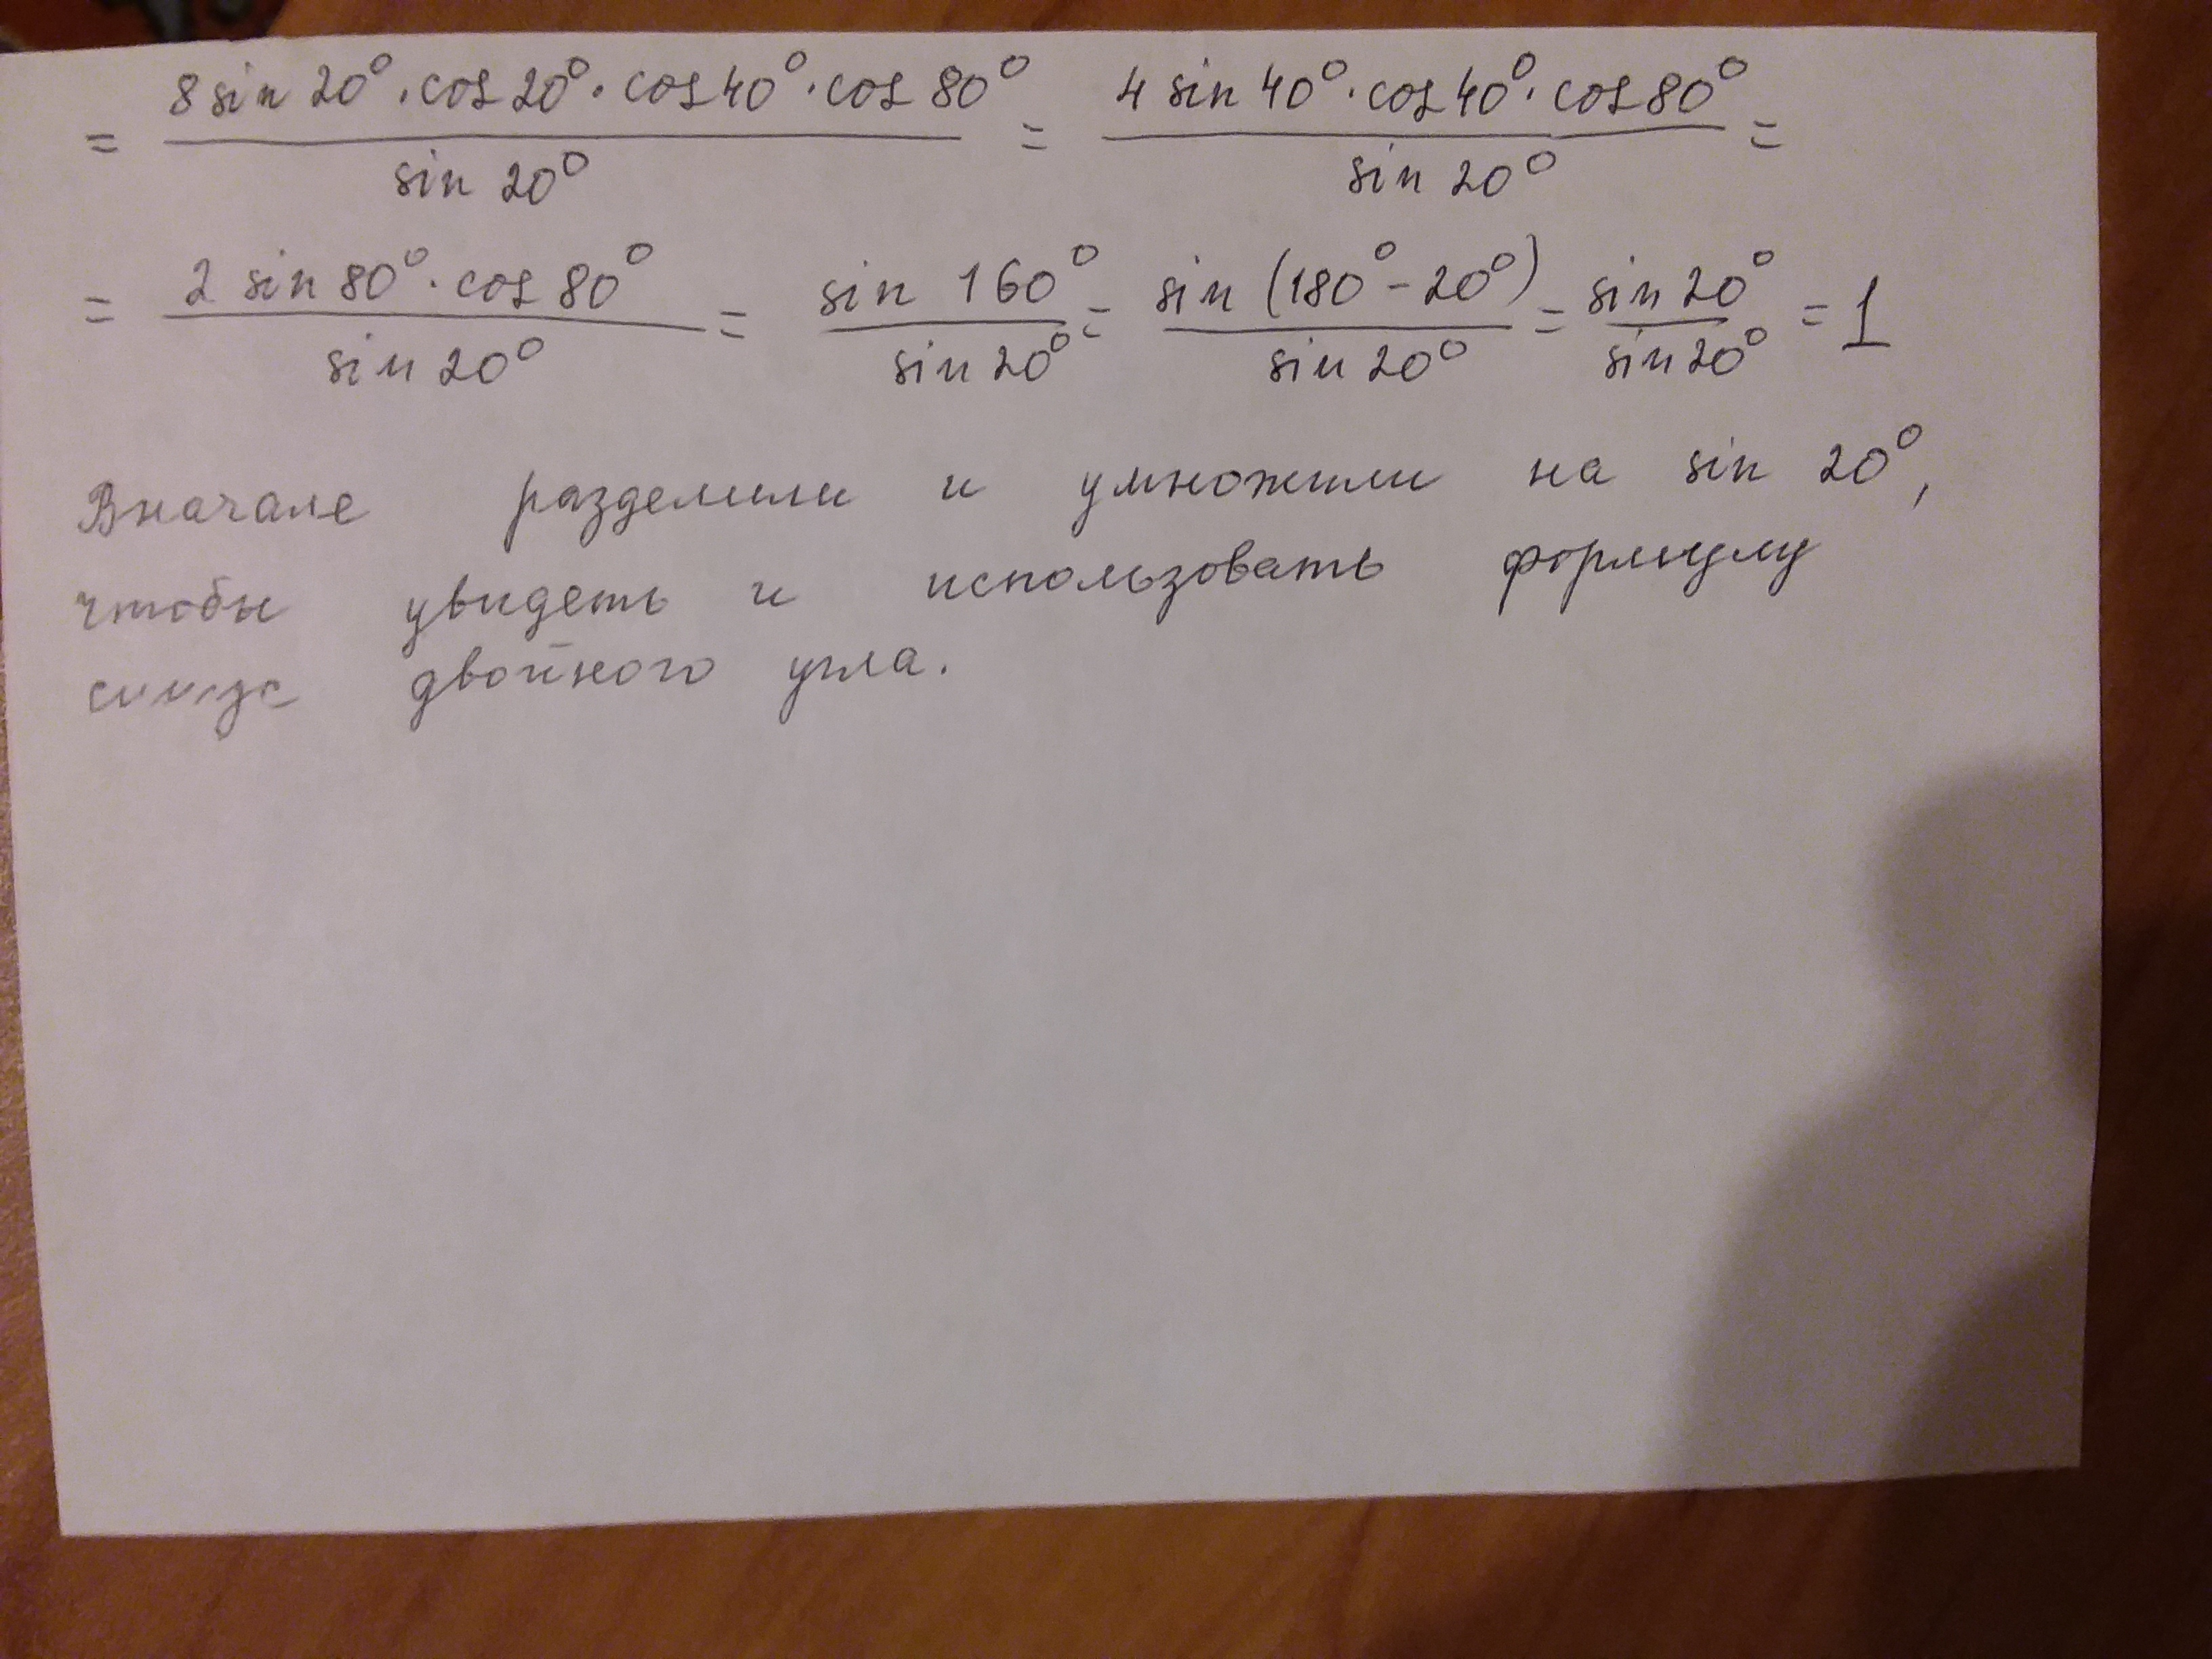 = 8 sin 20° · cos 20° · cos 40° · cos 80° / sin 20° = 4 sin 40° · cos 40° · cos 80° / sin 20° =
= 2 sin 80° · cos 80° / sin 20° = sin 160° / sin 20° = sin (180° - 20°) / sin 20° = sin 20° / sin 20° = 1
Вначале разделили и умножили на sin 20°,
чтобы увидеть и использовать формулу
синус двойного угла.